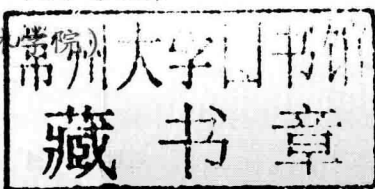 学院）
常州大学图书馆
藏书章